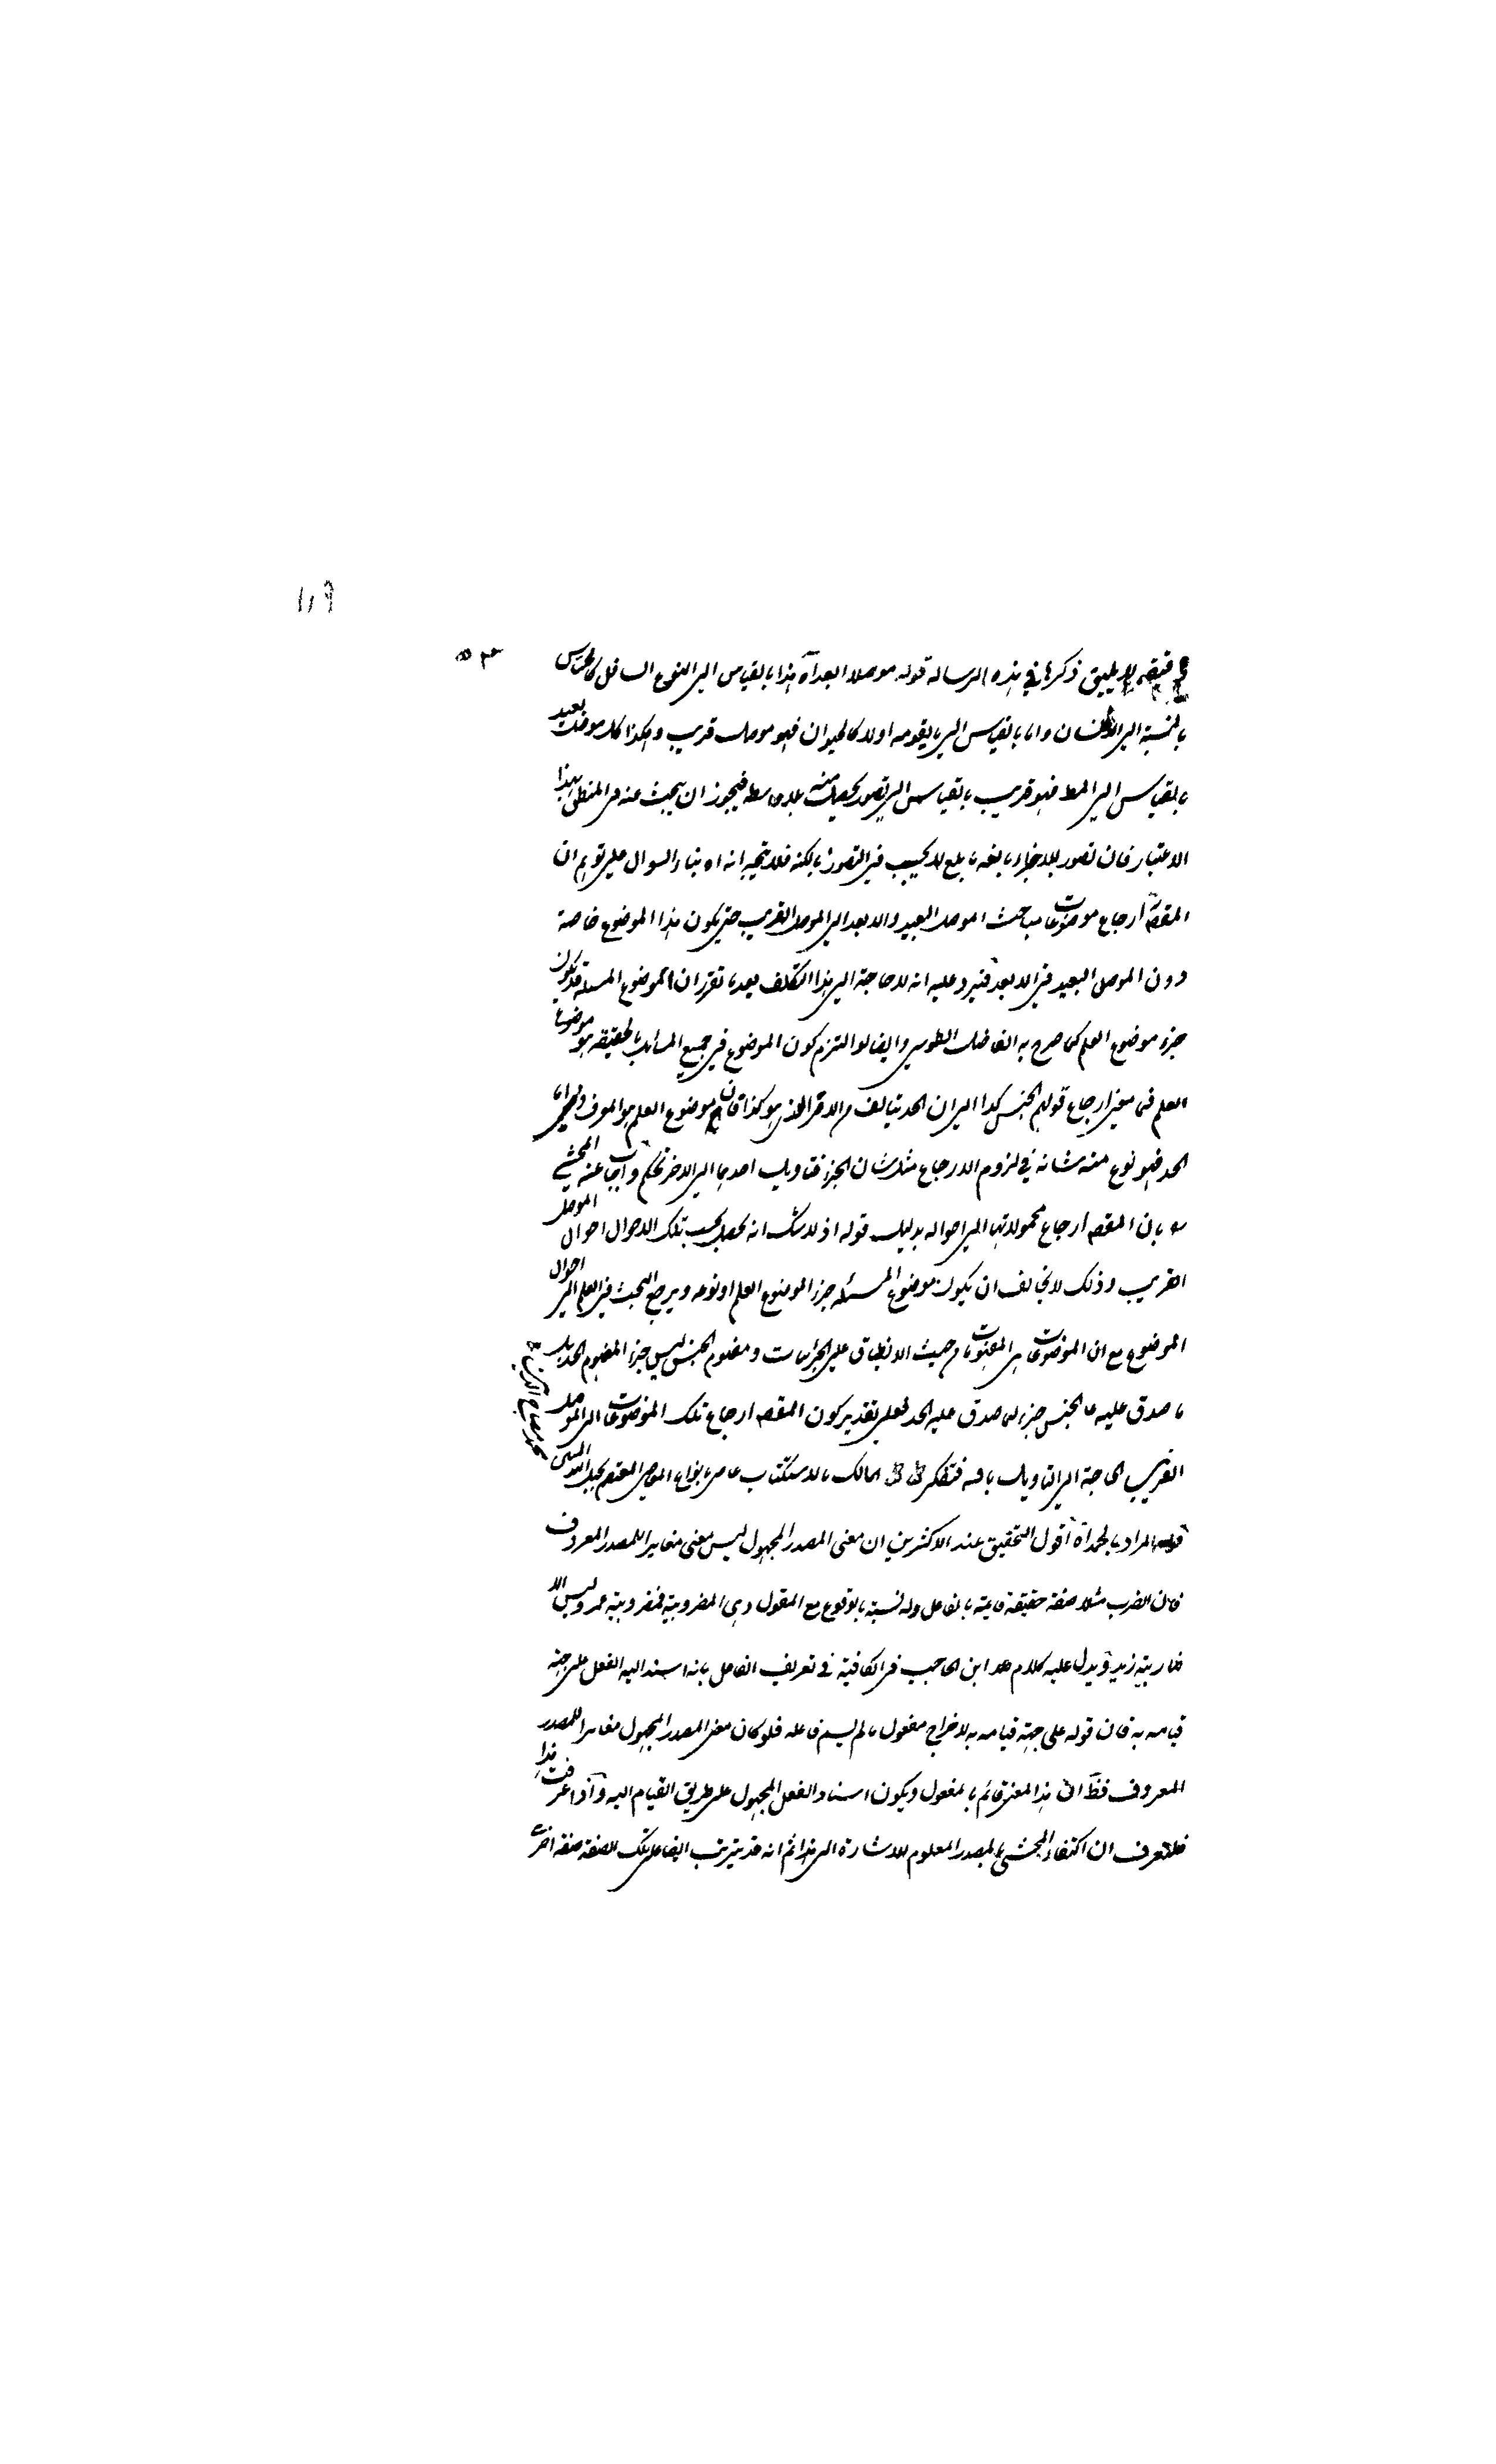 ١١٩
لا يليق ذكرها في هذه الرسالة قوله موصلا ابعد اه هذا بالقياس الى النوع السافل كالحساس
بالنسبة الى الانسان واما بالقياس الى ما يقومه اولا كالحيوان فهو موصل قريب وهكذا كل موصل بعيد
بالقياس الى المط فهو قريب بالقياس الى تصور يحصل منه بلا واسطة فيجوز ان يبحث عنه في المنطق بهذا
الاعتبار فان تصور الاجزاء فلا يتجه انه اه بناء السوال على توهم ان
المقصود ارجاع موضوعات مباحث الموصل البعيد والابعد الى الموصل القريب حتى يكون هذا الموضوع خاصة
دون الموصل البعيد والابعد فيرد عليه انه لا حاجة الى هذا التكلف بعد ما تقرر ان موضوع المسئلة قد يكون
جزء موضوع العلم كما صرح به الفاضل الطوسي وايضا لو التزم كون الموضوع في جميع المسائل بالحقيقة هو موضوع
العلم فما معنى ارجاع قولهم الجنس كذا الى ان الحد يتالف من الامر الذي هو كذا فان موضوع العلم هو المعرف واما
الحد فهو نوع منه شانه في لزوم الارجاع مثل شان الجزء فتاويل احدهما الى الاخر تحكم واجاب عنه المحشي
بان المقصود ارجاع محمولاتها الى احواله بدليل قوله اذ لا شك انه يحصل بحسب تلك الاحوال احوال الموصل
القريب وذلك لا يخالف ان يكون موضوع المسئلة جزء الموضوع العلم او نوعه ويرجع البحث في العلم الى احوال
الموضوع مع ان الموضوعات هي العنوانات من حيث الانطباق على الجزئيات ومفهوم الجنس ليس جزء المفهوم الحد بل
ما صدق عليه الجنس جزء لما صدق عليه الحد فعلى تقدير كون المقصود ارجاع تلك الموضوعات الى الموصل
القريب لا حاجة الى التاويل
قوله المراد بالحمد اه اقول التحقيق عند الاكثرين ان معنى المصدر المجهول ليس معنى مغايرا للمصدر المعروف
فان الضرب مثلا صفة حقيقة قايمة بالفاعل وله نسبة بالوقوع مع المفعول وهي المضروبية فمضروبية عمرو ليس الا
ضاربية زيد ويدل عليه كلام ابن الحاجب في الكافية في تعريف الفاعل بانه اسند اليه الفعل على جهة
قيامه به فان قوله على جهة قيامه به لاخراج مفعول ما لم يسم فاعله فلو كان معنى المصدر المجهول مغايرا للمصدر
المعروف فظ ان هذا المعنى قائم بالمفعول ويكون اسناد الفعل المجهول على طريق القيام اليه واذا عرفت هذا
فلتعرف ان اكتفاء المحشي بالمصدر المعلوم للاشارة الى هذا ثم انه قد يترتب الفاعل بتلك الصفة صفة اخرى